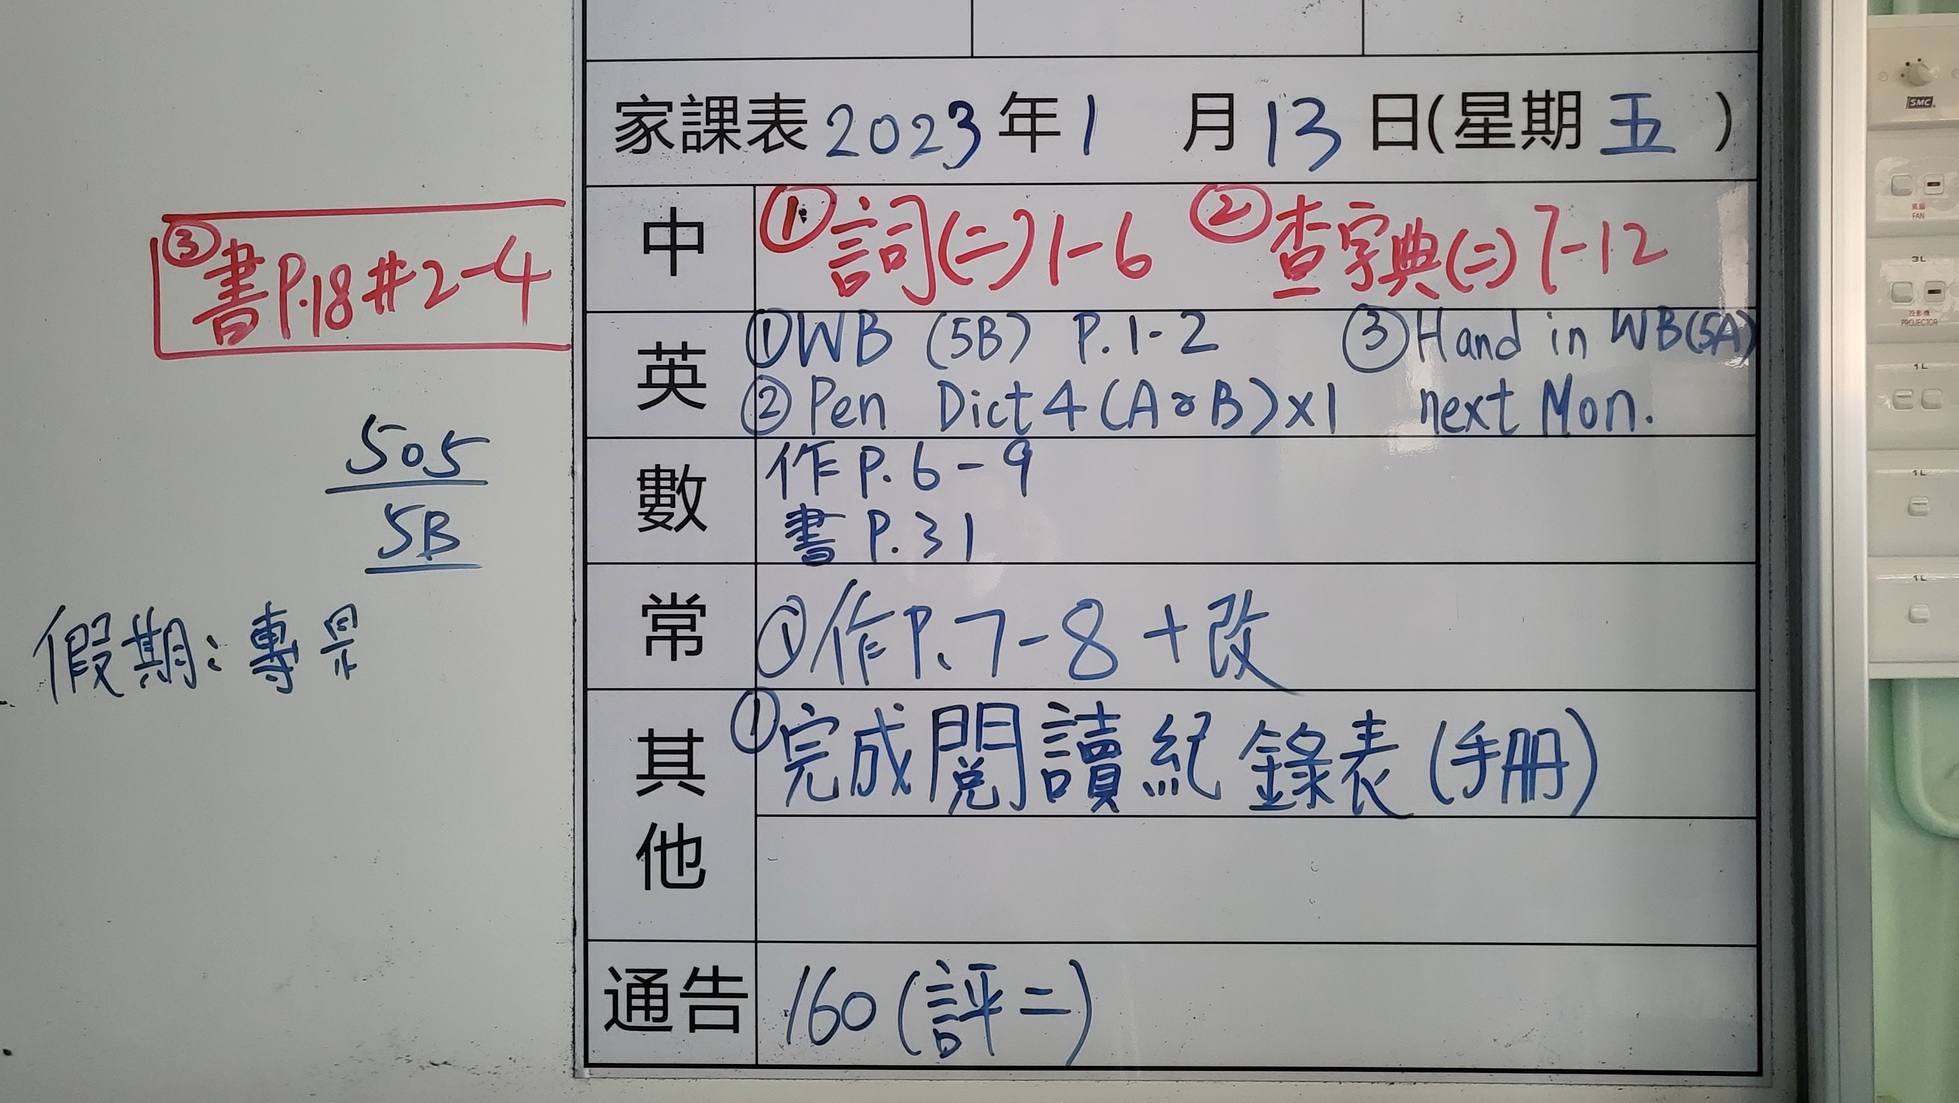 家課表 2023 年 1 月 13 日(星期 五 )
中 ①詞(二)1-6 ②查字典(二)7-12
③書P.18#2-4
英 ①WB (5B) P.1-2 ③Hand in WB(5A)
②Pen Dict 4 (A or B)×1 next Mon.
數 作P.6-9
書P.31
常 ①作P.7-8+改
其他 ①完成閱讀紀錄表(手册)
通告 160(評二)
505
5B
假期:專
SMC
風扇
FAN
3L
投影機
PROJECTOR
1L
1L
1L